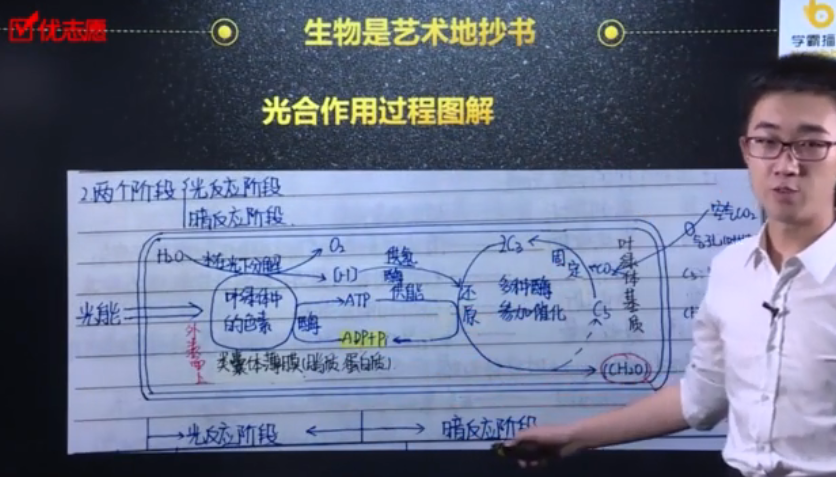 优志愿
生物是艺术地抄书
学霸
光合作用过程图解
2.两个阶段
光反应阶段
暗反应阶段
空气CO2
H2O
水在光下分解
O2
[H]
供氢
酶
供能
ATP
酶
ADP+Pi
光能
叶绿体中
的色素
外囊
类囊体薄膜
蛋白质)
还原
2C3
固定
CO2
多种酶
参加催化
C5
叶绿体基质
(CH2O)
光反应阶段
暗反应阶段